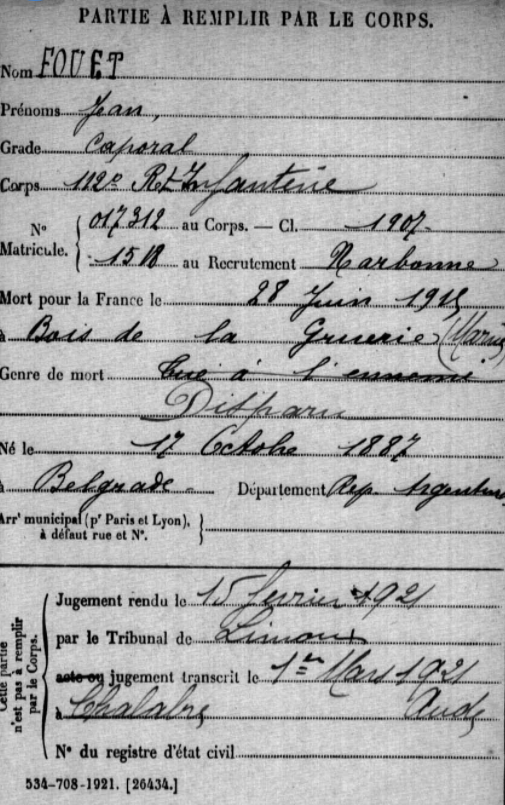 PARTIE À REMPLIR PAR LE CORPS.
Nom FOUET
Prénoms Jean,
Grade Caporal
Corps 112e Rt Infanterie
N° Matricule. 017312 au Corps. — Cl. 1907.
1518 au Recrutement Narbonne
Mort pour la France le 28 Juin 1915
à Bois de la Gruerie (Marne)
Genre de mort tué à l'ennemi
Disparu
Né le 17 Octobre 1887
à Belgrade - Département Rep. Argentine
Arrt municipal (pr Paris et Lyon), à défaut rue et N°.
Cette partie n'est pas à remplir par le Corps.
Jugement rendu le 15 février 1921
par le Tribunal de Limoux
acte ou jugement transcrit le 1er Mars 1921
à Chalabre Aude
N° du registre d'état civil
534-708-1921. [26434.]